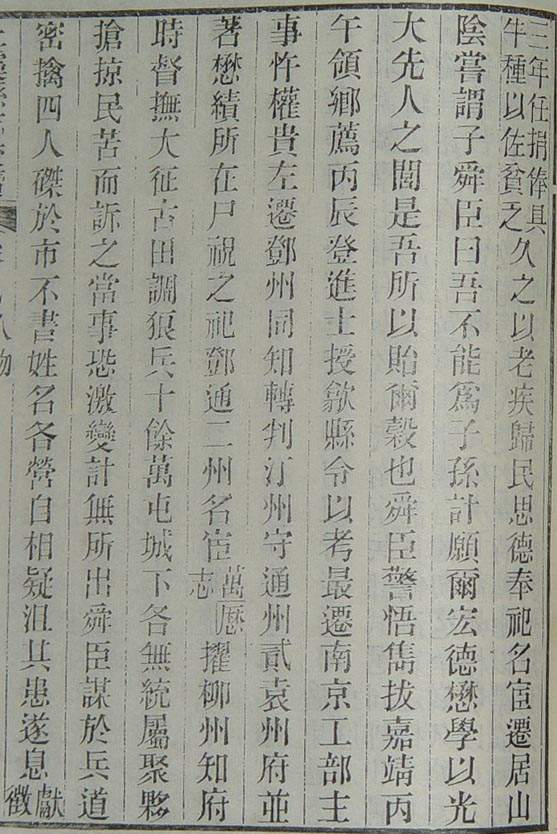 三年任捐俸具牛種以佐貧之久之以老疾歸民思德奉祀名宦遷居山
陰嘗謂子舜臣曰吾不能爲子孫計願爾宏德懋學以光
大先人之閭是吾所以貽爾穀也舜臣警悟雋拔嘉靖丙
午領鄉薦丙辰登進士授歙縣令以考最遷南京工部主
事忤權貴左遷鄧州同知轉判汀州守通州貳袁州府並
著懋績所在尸祝之祀鄧通二州名宦萬歷志擢柳州知府
時督撫大征古田調狼兵十餘萬屯城下各無統屬聚夥
搶掠民苦而訴之當事恐激變計無所出舜臣謀於兵道
密擒四人磔於市不書姓名各營自相疑沮其患遂息獻徵